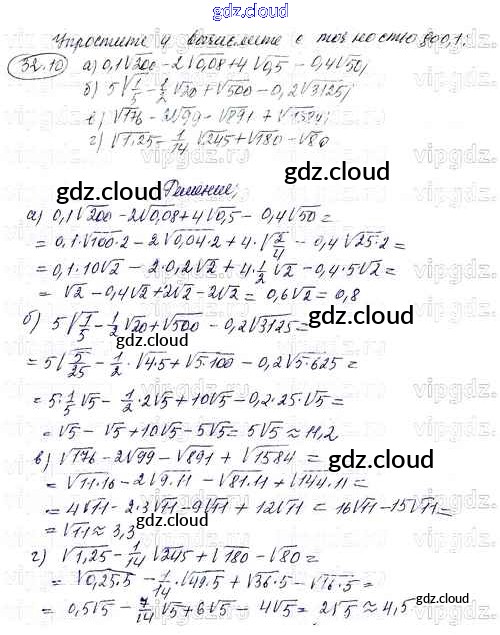 gdz.cloud
Упростите и вычислите с точностью до 0,1:
gdz.cloud
32.10 а) 0,1√200 - 2√0,08 + 4√0,5 - 0,4√50;
б) 5√1/5 - 1/2√20 + √500 - 0,2√3125;
в) √176 - 2√99 - √891 + √1584;
г) √1,25 - 1/14√245 + √180 - √80
gdz.cloud
Решение;
gdz.cloud
а) 0,1√200 - 2√0,08 + 4√0,5 - 0,4√50 =
= 0,1·√100·2 - 2√0,04·2 + 4·√2/4 - 0,4√25·2 =
= 0,1·10√2 - 2·0,2√2 + 4·1/2√2 - 0,4·5√2 =
= √2 - 0,4√2 + 2√2 - 2√2 = 0,6√2 = 0,8
gdz.cloud
б) 5√1/5 - 1/2√20 + √500 - 0,2√3125 =
= 5√5/25 - 1/2·√4·5 + √5·100 - 0,2√5·625 =
= 5·1/5√5 - 1/2·2√5 + 10√5 - 0,2·25·√5 =
= √5 - √5 + 10√5 - 5√5 = 5√5 ≈ 11,2
gdz.cloud
в) √176 - 2√99 - √891 + √1584 =
gdz.cloud
= √11·16 - 2√9·11 - √81·11 + √144·11 =
= 4√11 - 2·3√11 - 9√11 + 12√11 = 16√11 - 15√11 =
= √11 ≈ 3,3
gdz.cloud
г) √1,25 - 1/14√245 + √180 - √80 =
= √0,25·5 - 1/14·√49·5 + √36·5 - √16·5 =
gdz.cloud
= 0,5√5 - 7/14√5 + 6√5 - 4√5 = 2√5 ≈ 4,5